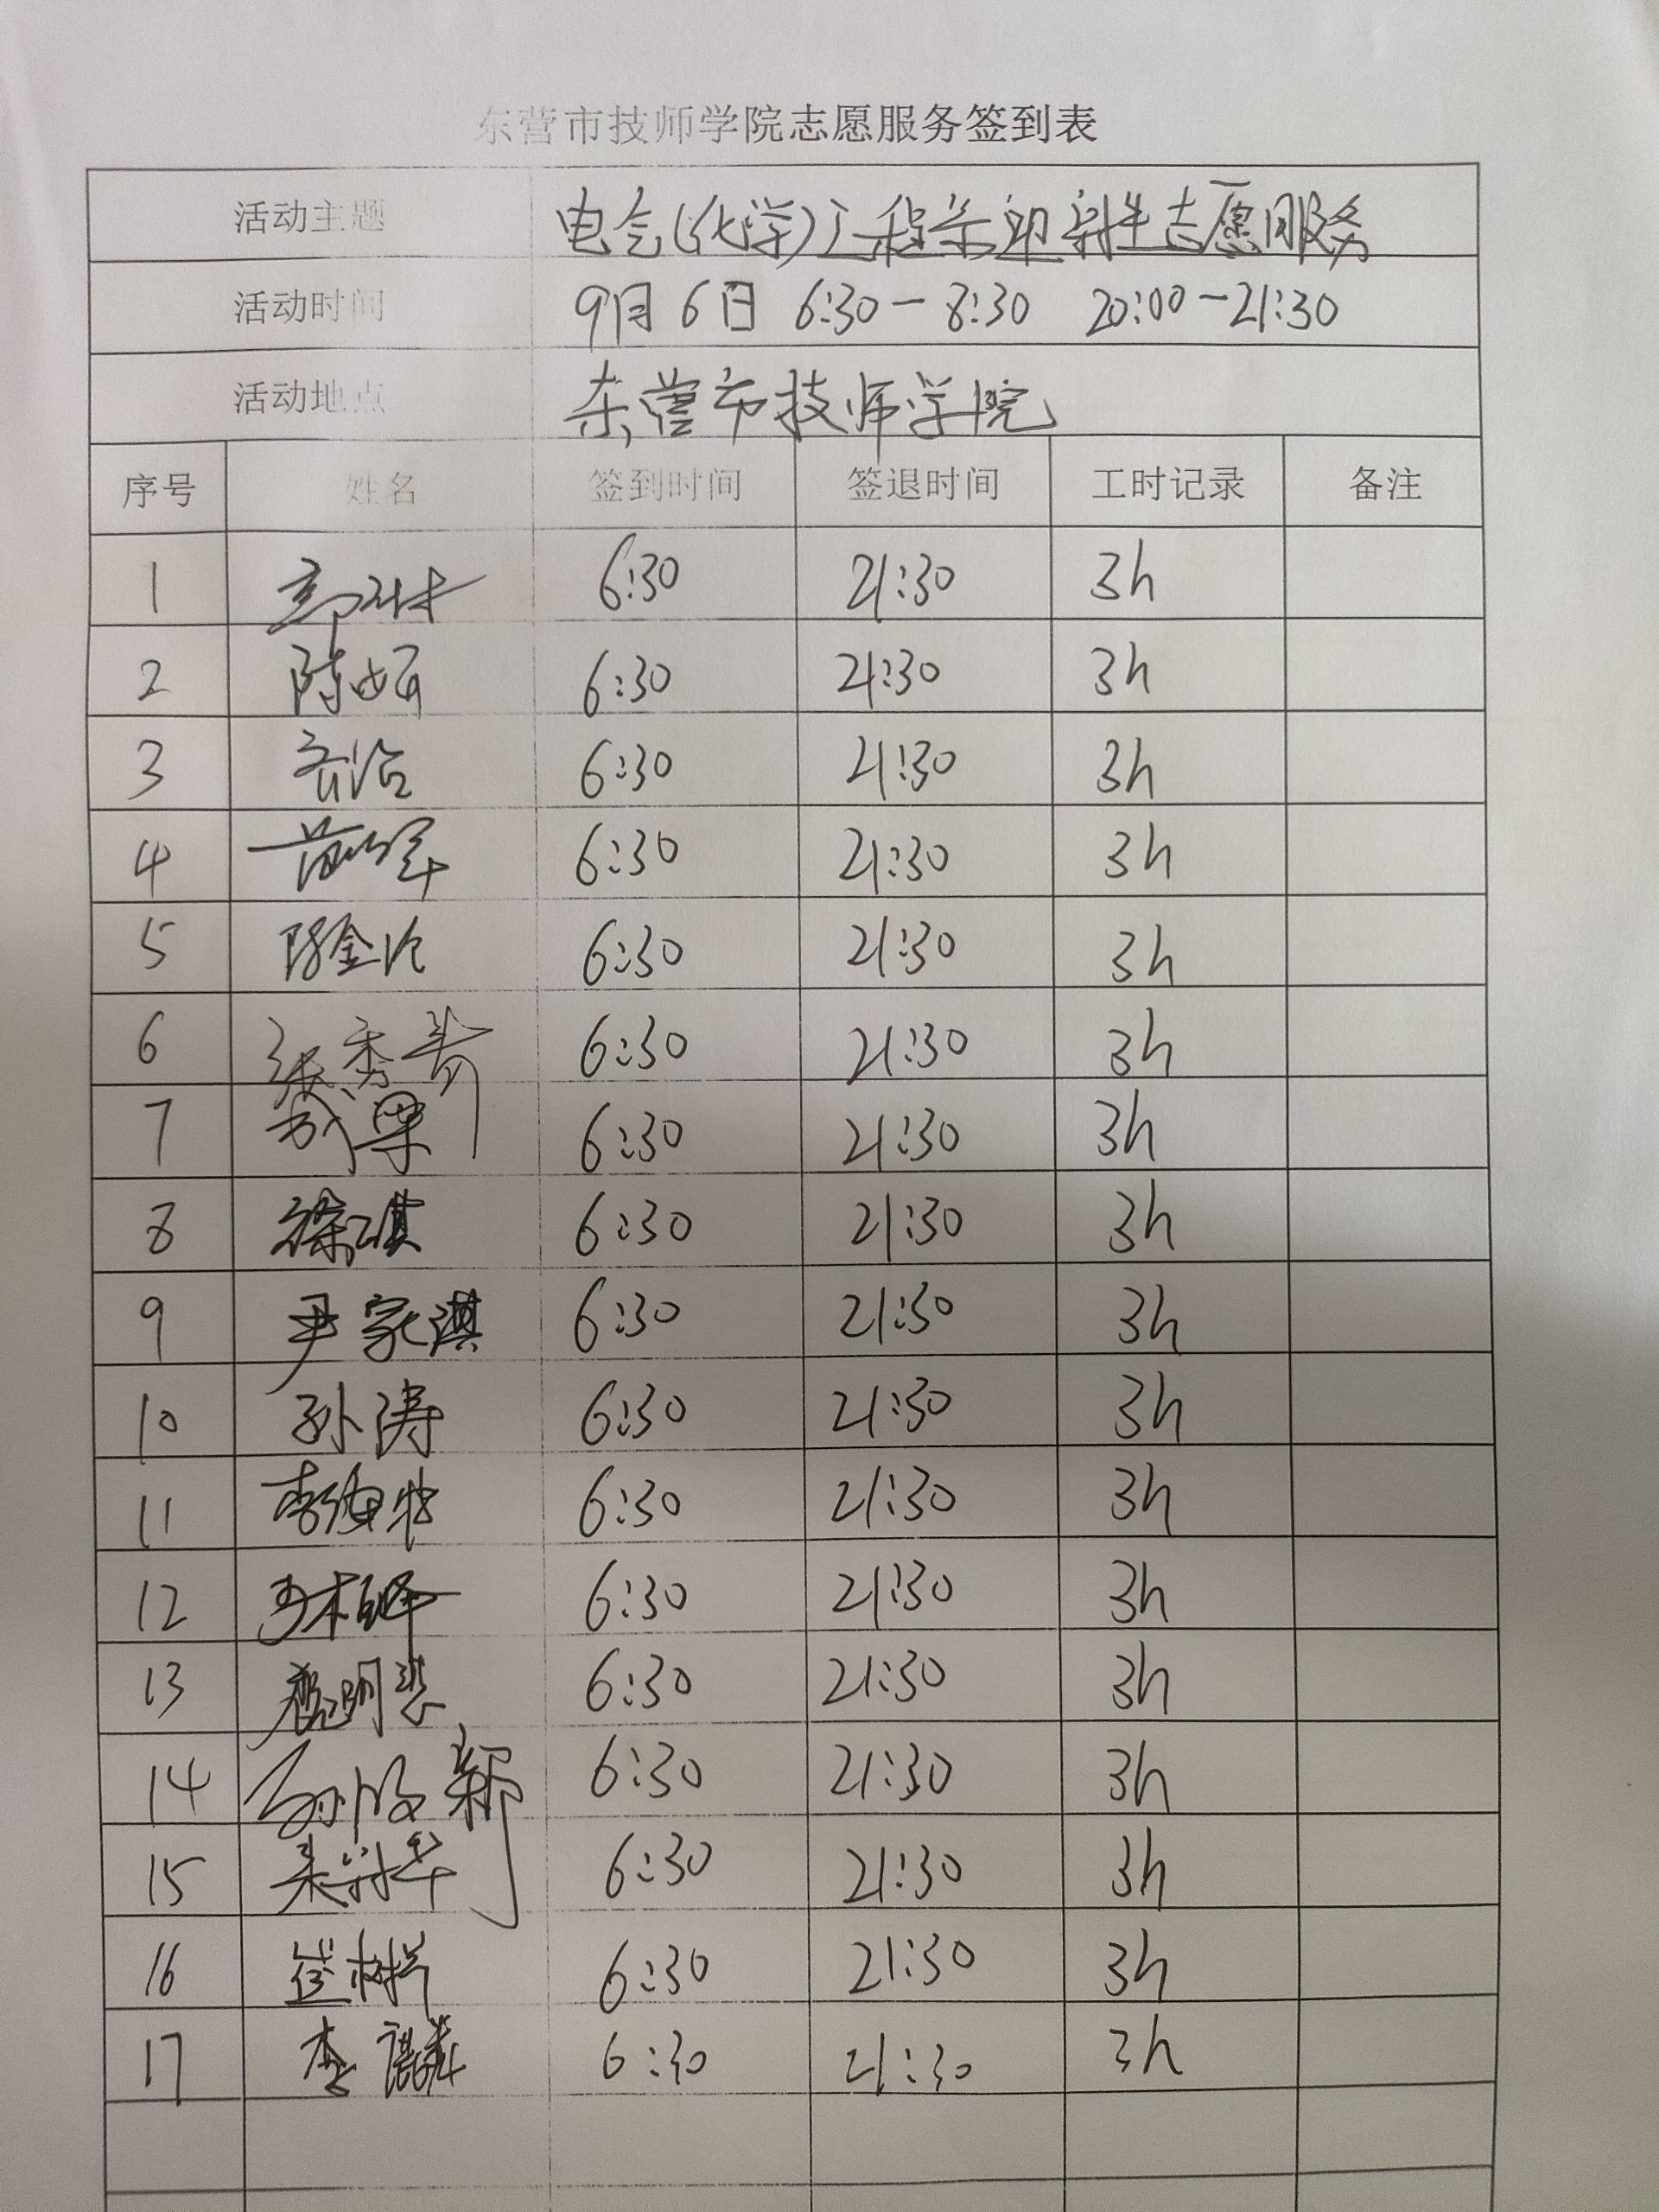 东营市技师学院志愿服务签到表
活动主题 电气(化学)工程系迎新生志愿服务
活动时间 9月6日 6:30-8:30 20:00-21:30
活动地点 东营市技师学院
序号 姓名 签到时间 签退时间 工时记录 备注
1 6:30 21:30 3h
2 陈妍 6:30 21:30 3h
3 6:30 21:30 3h
4 6:30 21:30 3h
5 6:30 21:30 3h
6 张秀 6:30 21:30 3h
7 6:30 21:30 3h
8 徐琪 6:30 21:30 3h
9 尹家淇 6:30 21:30 3h
10 孙涛 6:30 21:30 3h
11 李 6:30 21:30 3h
12 6:30 21:30 3h
13 明 6:30 21:30 3h
14 新 6:30 21:30 3h
15 6:30 21:30 3h
16 崔树 6:30 21:30 3h
17 李 6:30 21:30 3h